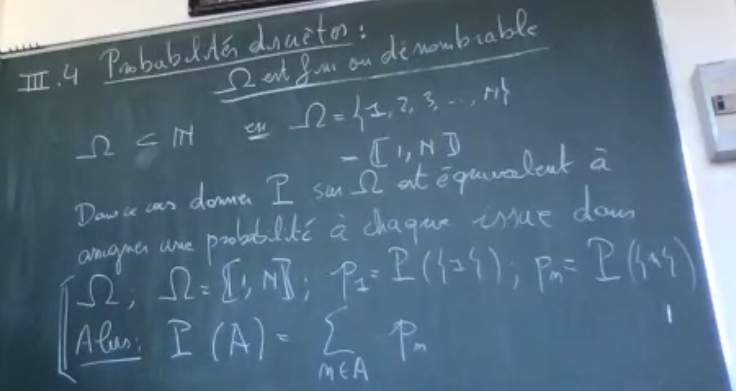 III.4 Probabilités discrètes :
Ω est fini ou dénombrable
Ω ⊂ ℕ ou Ω = {1, 2, 3, ..., N}
= ⟦1, N⟧
Dans ce cas donner ℙ sur Ω est équivalent à
assigner une probabilité à chaque issue dans
Ω ; Ω = ⟦1, N⟧ ; p₁ = ℙ({1}) ; pₙ = ℙ({n})
Alors : ℙ(A) = ∑ pₙ
n∈A